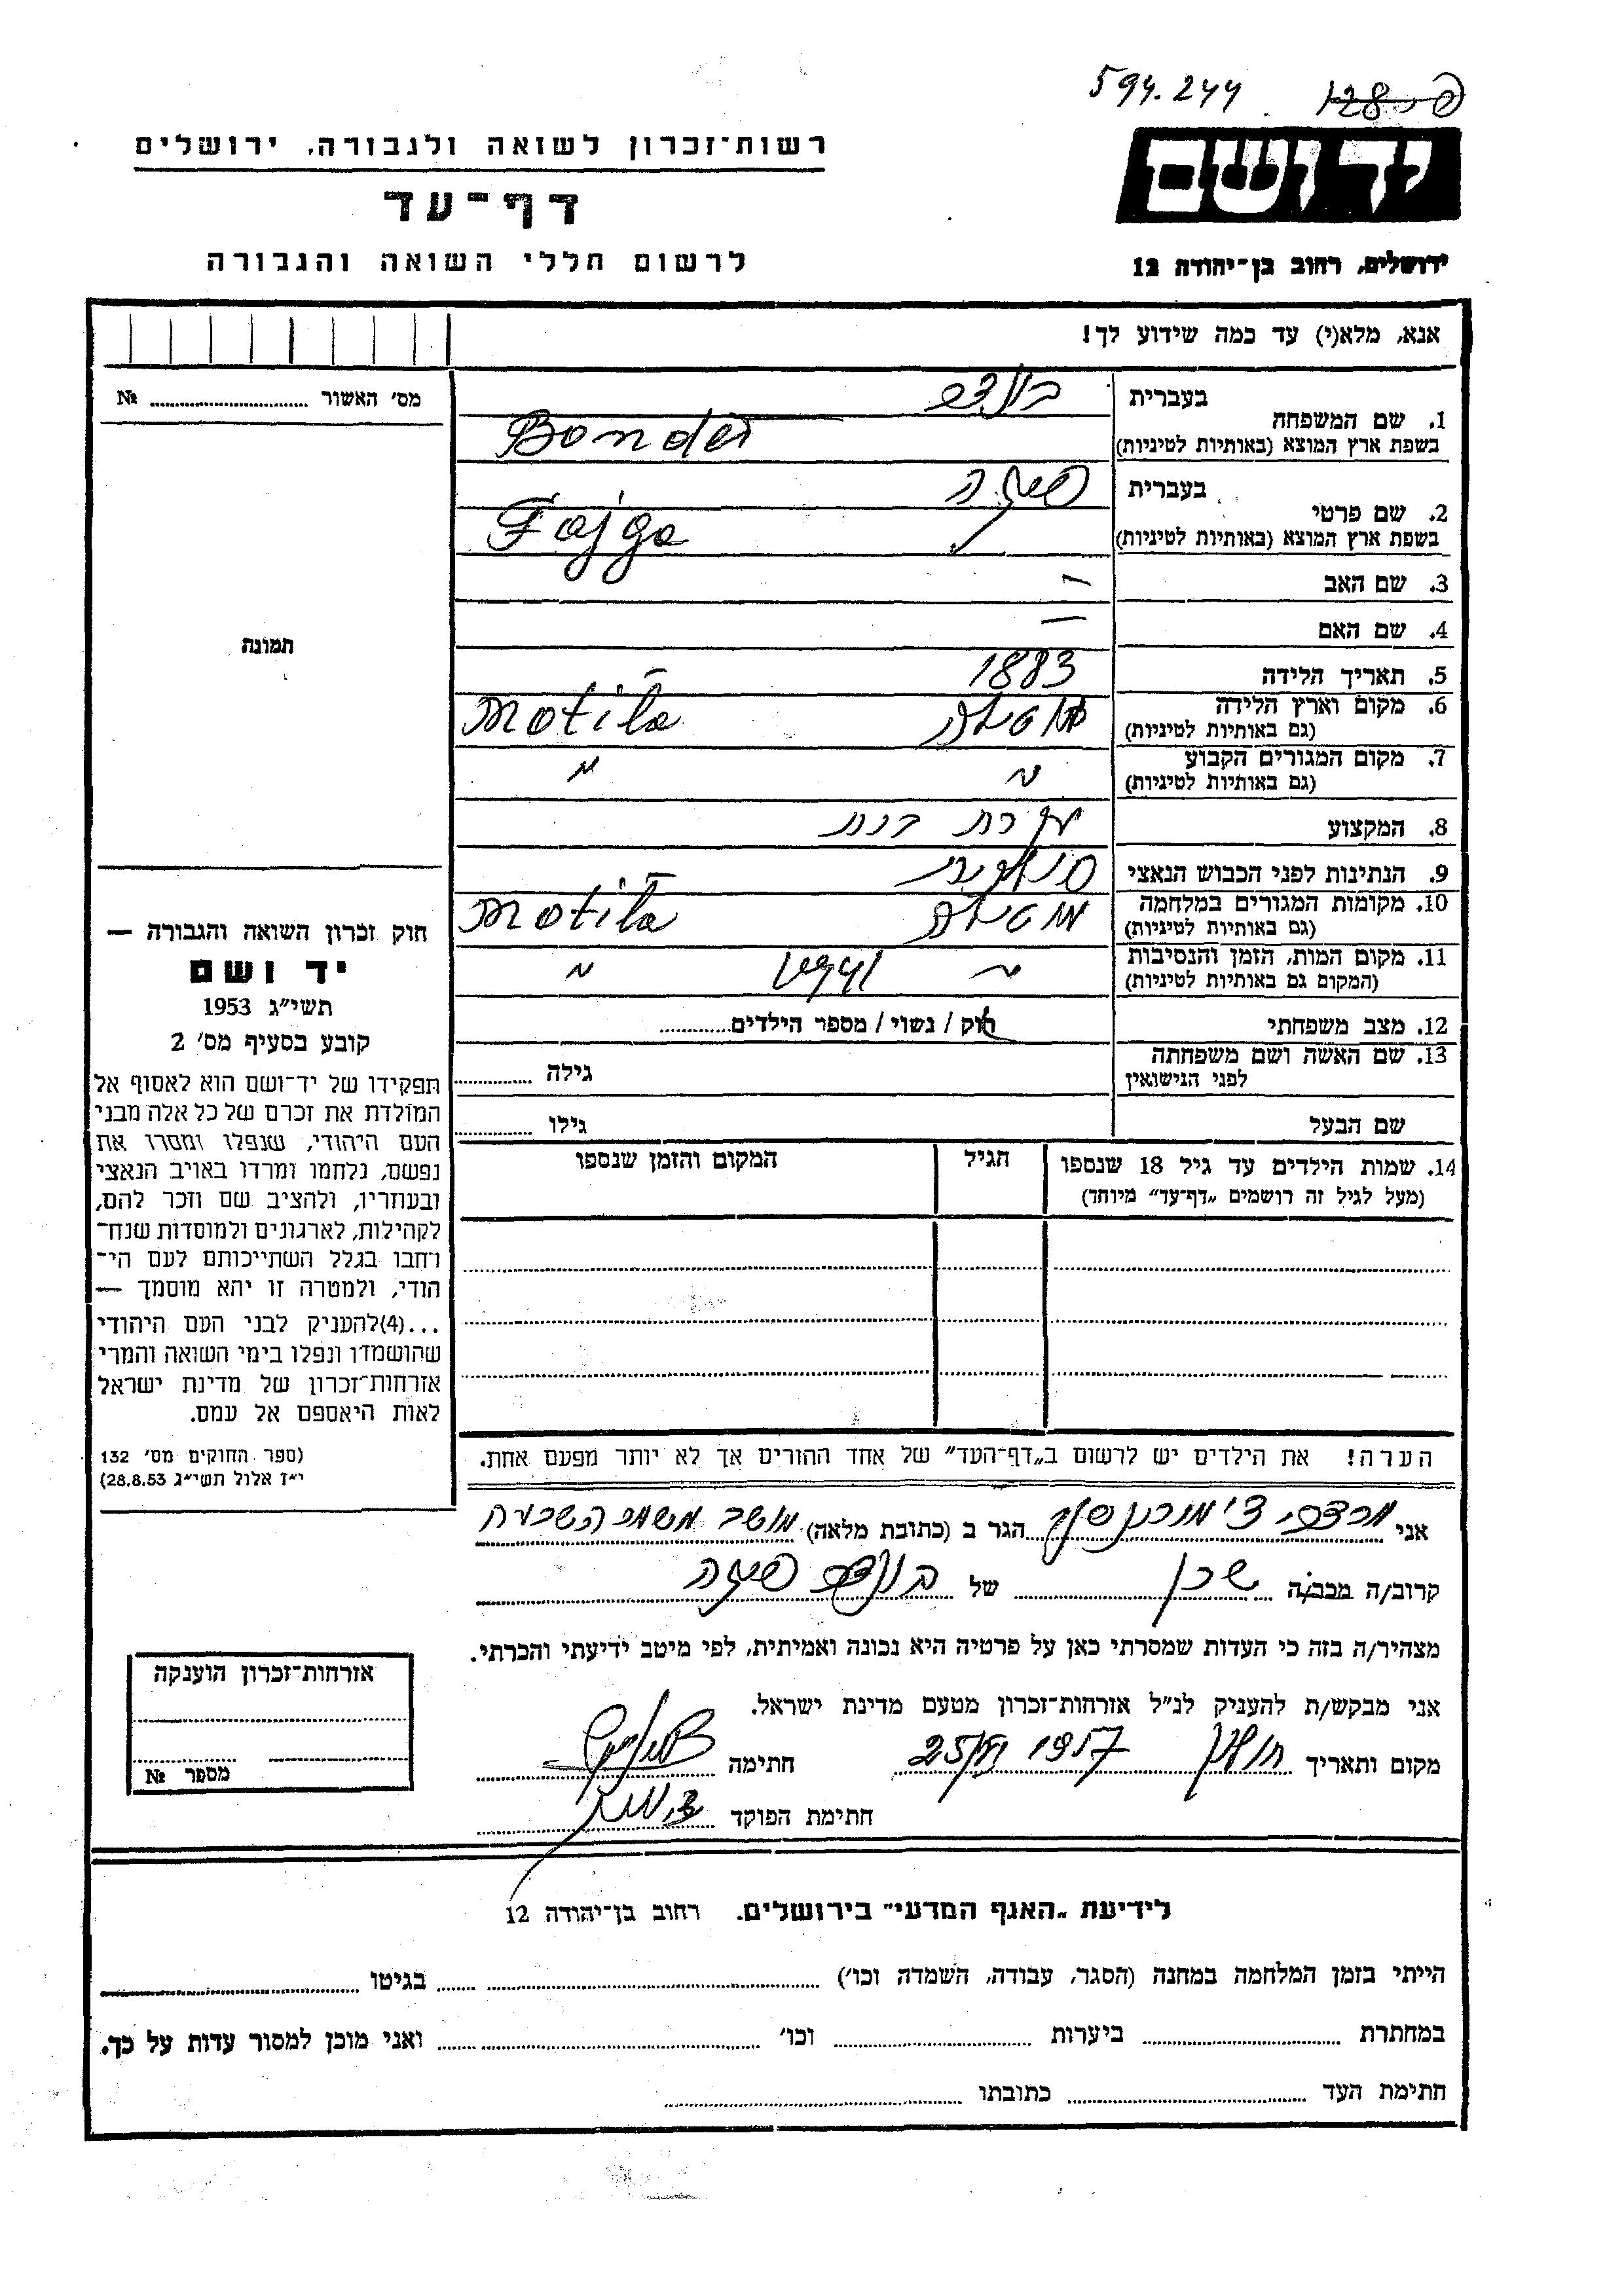 594.244 128
רשות־זכרון לשואה ולגבורה, ירושלים
דף־עד
לרשום חללי השואה והגבורה
יד ושם
ירושלים, רחוב בן־יהודה 12
אנא, מלא(י) עד כמה שידוע לך!
מס׳ האשור № 
תמונה
1. שם המשפחה
בעברית
בשפת ארץ המוצא (באותיות לטיניות) Bonder
2. שם פרטי
בעברית פייגה
בשפת ארץ המוצא (באותיות לטיניות) Fajga
3. שם האב —
4. שם האם —
5. תאריך הלידה 1883
6. מקום וארץ הלידה
(גם באותיות לטיניות) Motila
7. מקום המגורים הקבוע
(גם באותיות לטיניות) " "
8. המקצוע עקרת בית
9. הנתינות לפני הכבוש הנאצי
10. מקומות המגורים במלחמה
(גם באותיות לטיניות) Motila
11. מקום המות, הזמן והנסיבות
(המקום גם באותיות לטיניות) " "
12. מצב משפחתי רוק / נשוי / מספר הילדים
13. שם האשה ושם משפחתה
לפני הנישואין גילה
שם הבעל גילו
14. שמות הילדים עד גיל 18 שנספו הגיל המקום והזמן שנספו
(מעל לגיל זה רושמים „דף־עד" מיוחד)
הערה! את הילדים יש לרשום ב„דף־העד" של אחד ההורים אך לא יותר מפעם אחת.
חוק זכרון השואה והגבורה —
יד ושם
תשי״ג 1953
קובע בסעיף מס׳ 2
תפקידו של יד־ושם הוא לאסוף אל
המולדת את זכרם של כל אלה מבני
העם היהודי, שנפלו ומסרו את
נפשם, נלחמו ומרדו באויב הנאצי
ובעוזריו, ולהציב שם וזכר להם,
לקהילות, לארגונים ולמוסדות שנח־
רחבו בגלל השתייכותם לעם הי־
הודי, ולמטרה זו יהא מוסמך —
...(4)להעניק לבני העם היהודי
שהושמדו ונפלו בימי השואה והמרי
אזרחות־זכרון של מדינת ישראל
לאות היאספם אל עמם.
(ספר החוקים מס׳ 132
י״ז אלול תשי״ג 28.8.53)
אני מרדכי הגר ב (כתובת מלאה) מושב
קרוב/ה מכר/ה שכן של בונדר פייגה
מצהיר/ה בזה כי העדות שמסרתי כאן על פרטיה היא נכונה ואמיתית, לפי מיטב ידיעתי והכרתי.
אני מבקש/ת להעניק לנ״ל אזרחות־זכרון מטעם מדינת ישראל.
מקום ותאריך 1957 חתימה
חתימת הפוקד
אזרחות־זכרון הוענקה
מספר №
לידיעת „האגף המדעי" בירושלים. רחוב בן־יהודה 12
הייתי בזמן המלחמה במחנה (הסגר, עבודה, השמדה וכו׳) בגיטו
במחתרת ביערות וכו׳ ואני מוכן למסור עדות על כך.
חתימת העד כתובתו